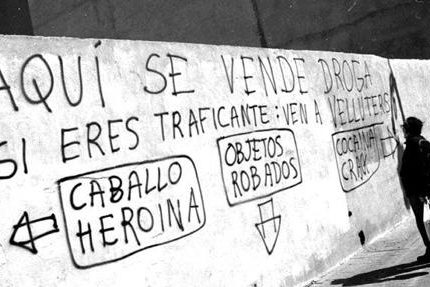 AQUÍ SE VENDE DROGA
SI ERES TRAFICANTE: VEN A VELLUTERS
CABALLO
HEROINA
OBJETOS
ROBADOS
COCAINA
CRAK